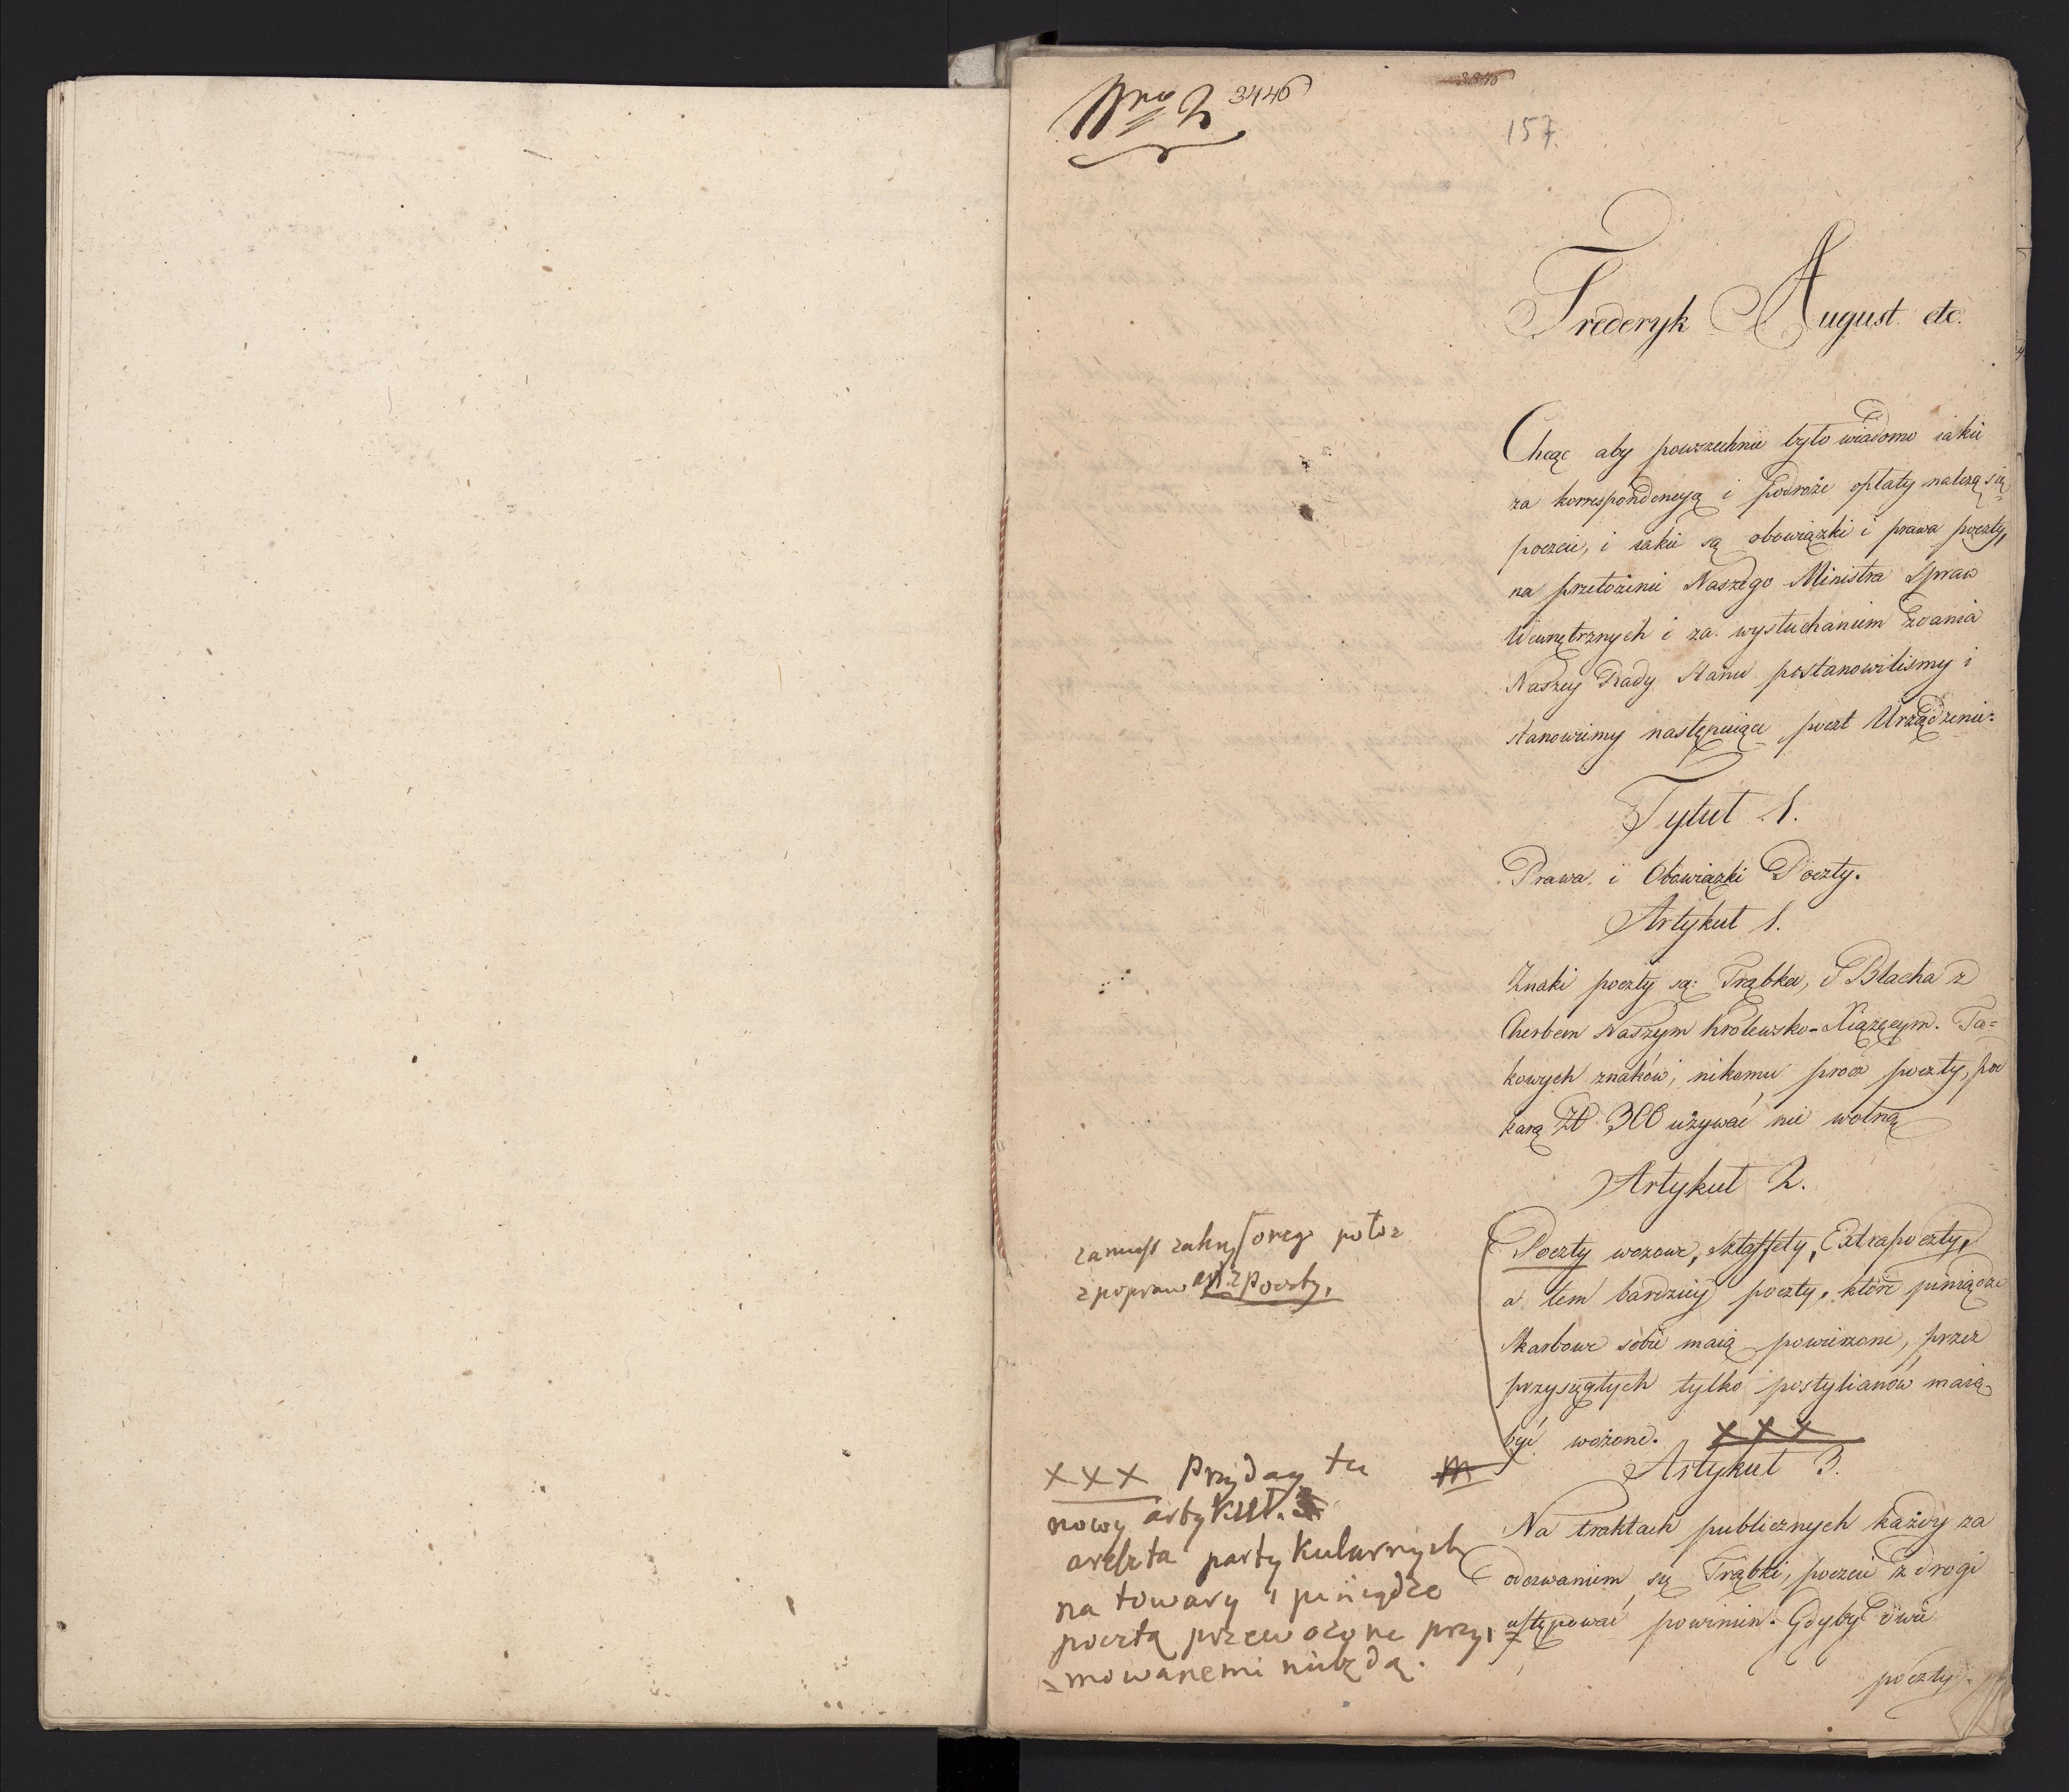 Nro 2 3446
157.
Frederyk August. etc.
Chcąc aby powszechnie było wiadomo iakie
za korrespondencyą i podroże opłaty należą się
poczcie, i iakie są obowiązki i prawa poczty,
na przełożenie Naszego Ministra Spraw
Wewnętrznych i za wysłuchaniem Zdania
Naszey Rady Stanu postanowilismy i
stanowiemy następuiące poczt Urządzenie:
Tytuł 1.
Prawa i Obowiązki Poczty.
Artykuł 1.
Znaki poczty są: Trąbka, i Blacha z
Cherbem Naszym Krolewsko-Xiążęcym. Ta=
kowych znaków, nikomu procz poczty, pod
karą Zł 300 używać nie wolną
Artykuł 2.
Poczty wozowe, Sztaffety, Extrapoczty,
a tem bardziey poczty, które pieniądze
Skarbowe sobie maią powierzone, przez
przysięgłych tylko postylianów maią
być wożone. XXX
Artykuł 3.
Na traktach publicznych każdy za
odezwaniem się Trąbki, poczcie z drogi
ustępować powinien. Gdyby dwie
poczty
zamiast zakryslonego połoz
z popraw art. 2 Poczty,
XXX Przyday tu
nowy artykuł.
areszta partykularnych
na towary i pieniądze
pocztą przewożone przy,
=mowanemi niebędą.